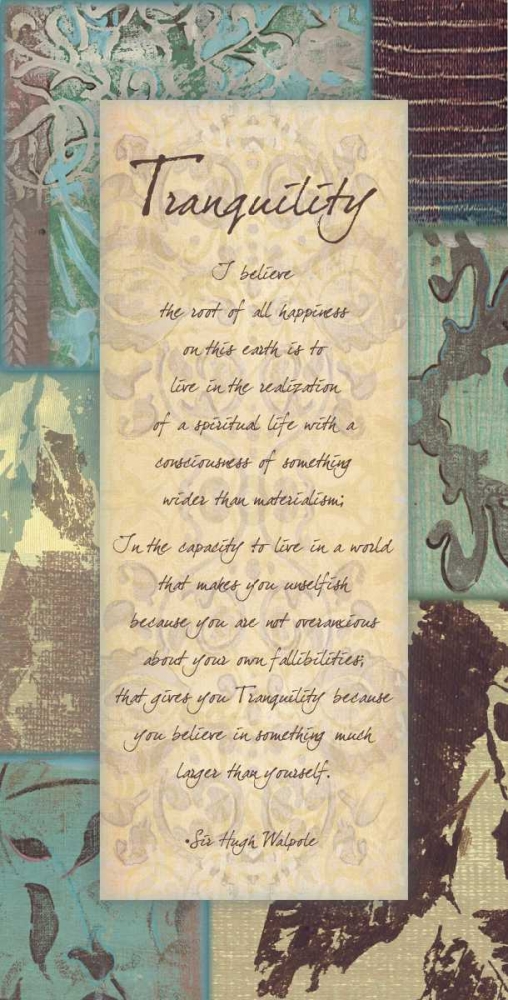 Tranquility
I believe
the root of all happiness
on this earth is to
live in the realization
of a spiritual life with a
consciousness of something
wider than materialism;
In the capacity to live in a world
that makes you unselfish
because you are not overanxious
about your own fallibilities;
that gives you Tranquility because
you believe in something much
larger than yourself.
•Sir Hugh Walpole